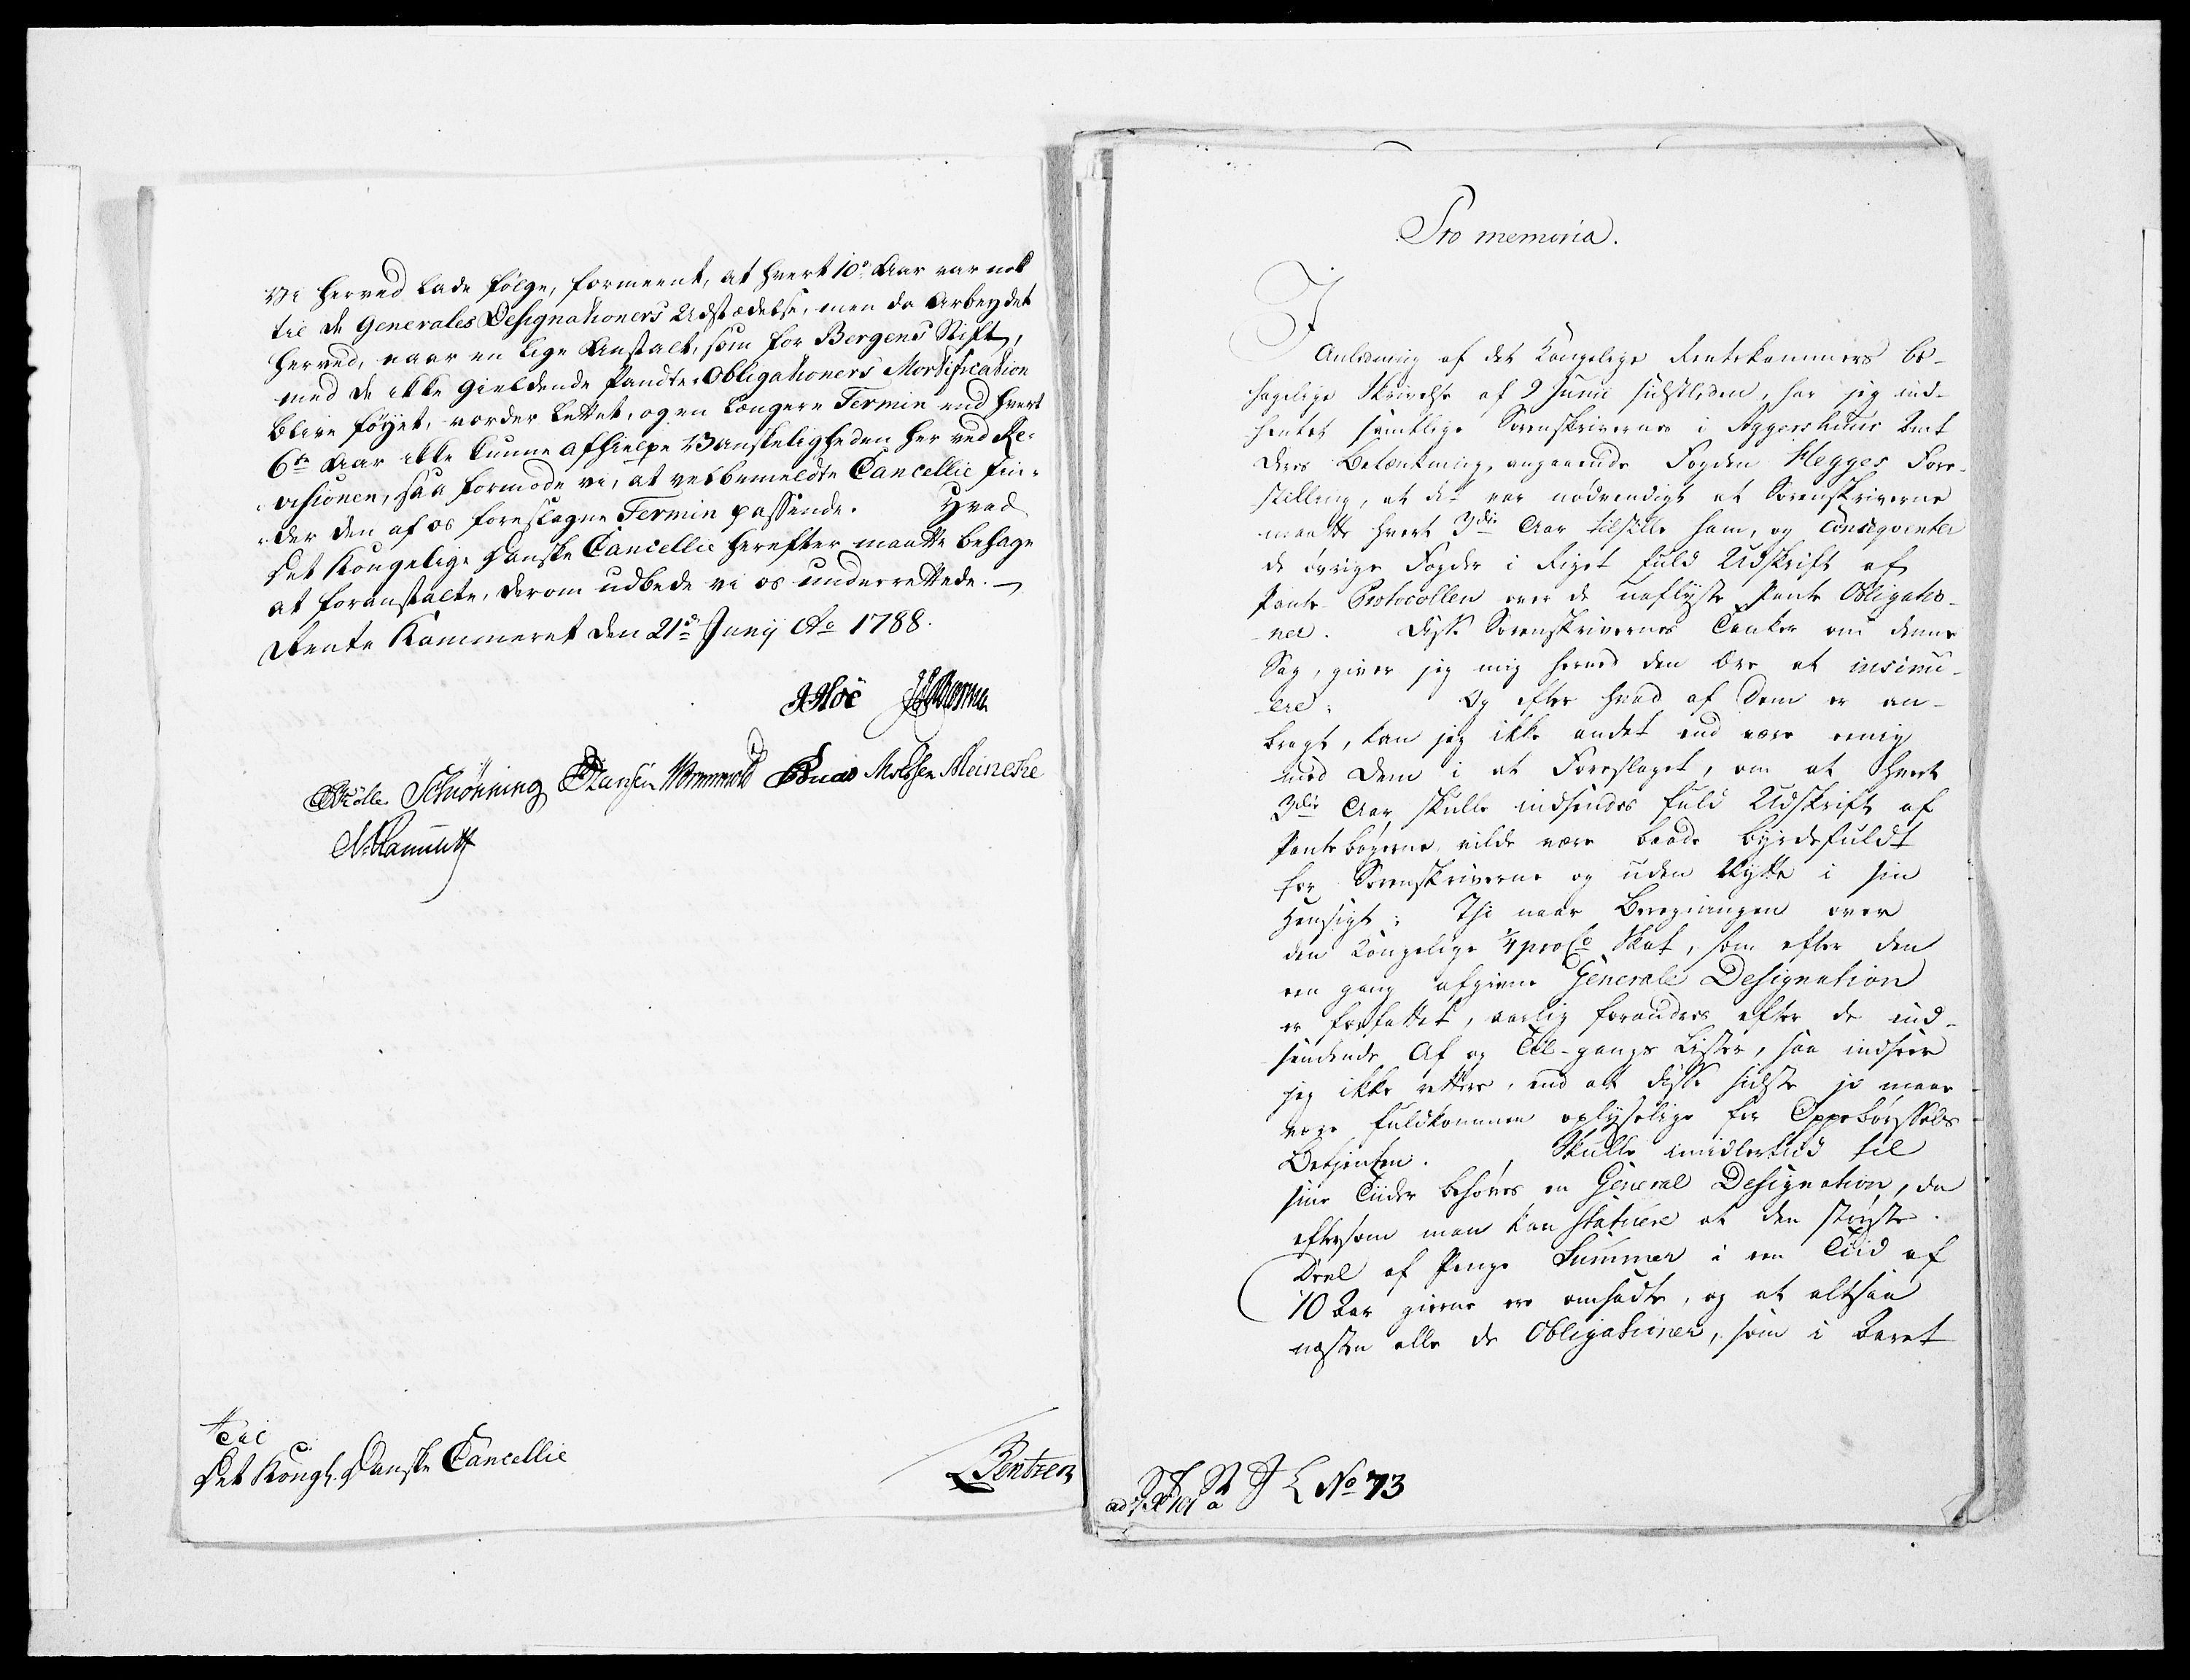 vi herved lade følge, formeent, at hvert 10de Aar var nok
til de Generales Designationers Udstædelse, men da Arbeydet
herved, naar en lige Anstalt, som for Bergens Stift,
med de ikke gieldende Pandte-Obligationers Mortification
blive føyet, vorder lettet, og en længere Termin end hvert
6te Aar ikke kunne afhielpe Vanskeligheden her ved Re-
visionen, saa formode vi, at velbemeldte Cancellie fin-
der den af os foreslagne Termin passende. Hvad
Det Kongelige Danske Cancellie herefter maatte behage
at foranstalte, derom udbede vi os underrettede. —
Rente Kammeret den 21de Junij Ao 1788.
Schiønning Meincke
Til
Det Kongl. Danske Cancellie
Bentzen
Pro memoria.
I
Anledning af det Kongelige Rentekammers be-
hagelige Skrivelse af 9 Junii sidstleden, har jeg ind-
hentet samtlige Sorenskrivernes i Aggershuus Amt
deres Betænkning, angaaende Fogden Hegges Fore-
stilling, at det var nødvendigt at Sorenskriverne
maatte hvert 3die Aar tilstille ham, og conseqventer
de øvrige Fogder i Riget fuld Udskrift af
Pante-Protocollen over de uaflyste Pante Obligatio-
ner. Disse Sorenskrivernes Tanker om denne
Sag, giver jeg mig herved den Ære at insinu-
ere; Og efter hvad af Dem er an-
bragt, kan jeg ikke andet end være eenig
med Dem i at Forslaget, om at hvert
3die Aar skulle indsendes fuld Udskrift af
Pantebøgerne vilde være baade byrdefuldt
for Sorenskriverne og uden Nytte i sin
Hensigt; Thi naar Beregningen over
den Kongelige 1/4 pro Co Skat, som efter den
een gang afgivne Generale Designation
er forfattet, aarlig forandres efter de ind-
sendende Af og Til-gangs Lister, saa indseer
jeg ikke rettere, end at disse sidste jo maae
være fuldkommen oplyselige for Oppebørsels
Betjenten. Skulle imidlertid til
sine Tiider behøves en General Designation, da
eftersom man kan statuere at den største
Deel af Penge Summer i een Tiid af
10 Aar gierne ere omsadte, og at altsaa
næsten alle de Obligationer, som i Aaret
No 73